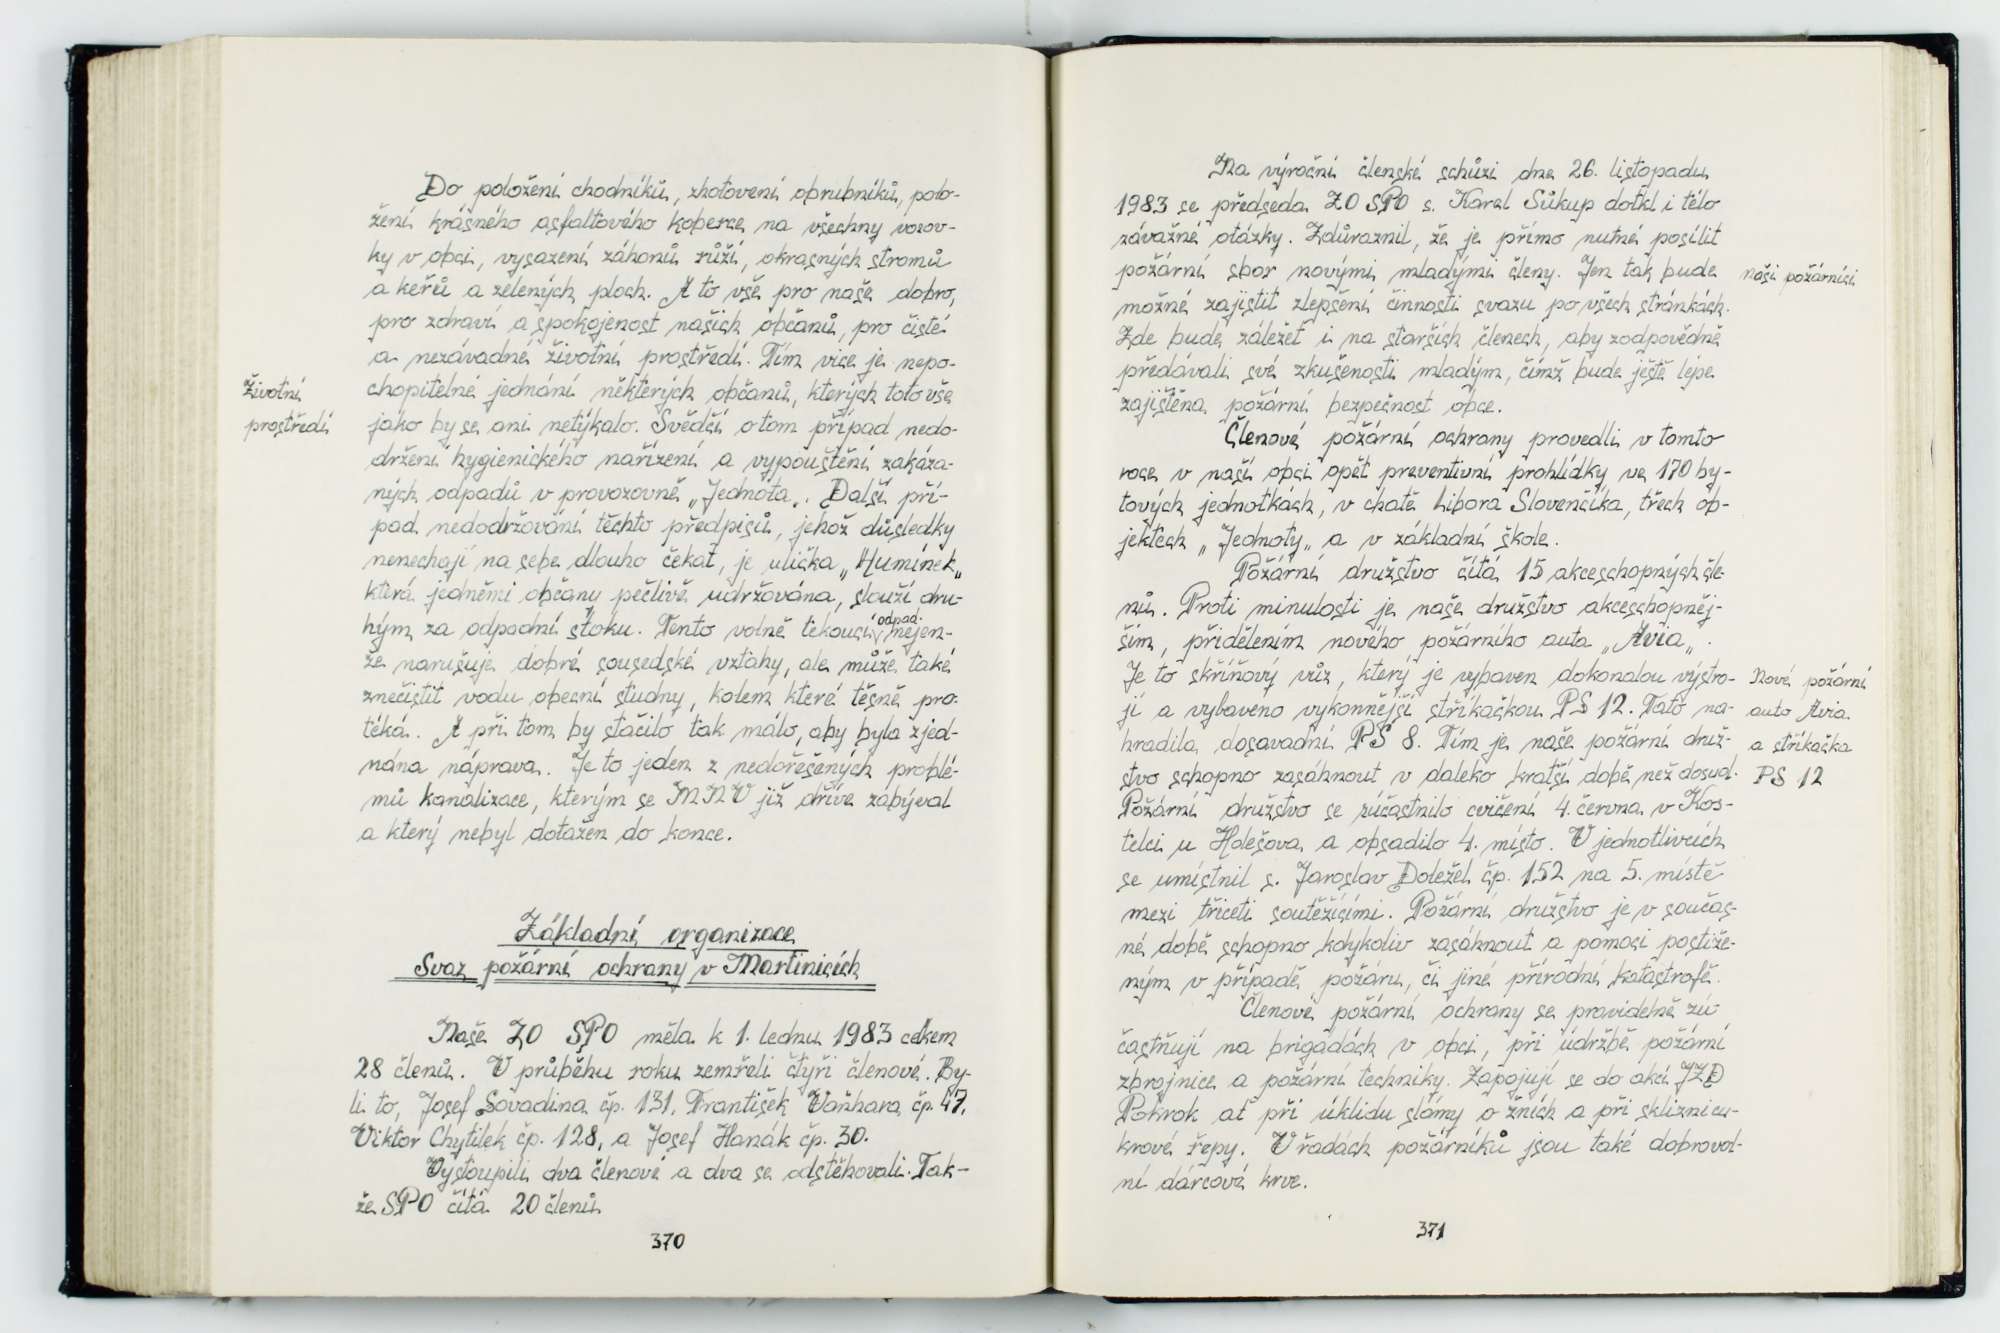 Do položení chodníků, zhotovení obrubníků, polo-
žení krásného asfaltového koberce na všechny vozov-
ky v obci, vysazení záhonů růží, okrasných stromů
a keřů a zelených ploch. A to vše pro naše dobro,
pro zdraví a spokojenost našich občanů, pro čisté
a nezávadné životní prostředí. Tím více je nepo-
Životní
prostředí
chopitelné jednání některých občanů, kterých toto vše
jako by se ani netýkalo. Svědčí o tom případ nedo-
držení hygienického nařízení a vypouštění zakáza-
ných odpadů v provozovně „Jednota„. Další pří-
pad nedodržování těchto předpisů, jehož důsledky
nenechají na sebe dlouho čekat, je ulička „Humínek„
která jedněmi občany pečlivě udržována, slouží dru-
hým za odpadní stoku. Tento volně tekoucí odpad nejen-
že narušuje dobré sousedské vztahy, ale může také
znečistit vodu obecní studny, kolem které těsně pro-
téká. A při tom by stačilo tak málo, aby byla zjed-
nána náprava. Je to jeden z nedořešených problé-
mů kanalizace, kterým se MNV již dříve zabýval
a který nebyl dotažen do konce.
Základní organizace
Svaz požární ochrany v Martinicích
Naše ZO SPO měla k 1. lednu 1983 celkem
28 členů. V průběhu roku zemřeli čtyři členové. By-
li to, Josef Sovadina čp. 131, František Vaňhara čp. 47,
Viktor Chytilek čp. 128, a Josef Hanák čp. 30.
Vystoupili dva členové a dva se odstěhovali. Tak-
že SPO čítá 20 členů
370
Na výroční členské schůzi dne 26. listopadu
1983 se předseda ZO SPO s. Karel Sůkup dotkl i této
závažné otázky. Zdůraznil, že je přímo nutné posílit
požární sbor novými mladými členy. Jen tak bude
naši požárníci
možné zajistit zlepšení činnosti svazu po všech stránkách.
Zde bude záležet i na starších členech, aby zodpovědně
předávali své zkušenosti mladým, čímž bude ještě lépe
zajištěna požární bezpečnost obce.
Členové požární ochrany provedli v tomto
roce v naší obci opět preventivní prohlídky ve 170 by-
tových jednotkách, v chatě Libora Slovenčíka, třech ob-
jektech „Jednoty„ a v základní škole.
Požární družstvo čítá 15 akceschopných čle-
nů. Proti minulosti je naše družstvo akceschopněj-
ším, přidělením nového požárního auta „Avia„.
Je to skříňový vůz, který je vybaven dokonalou výstro-
jí a vybaveno výkonnější stříkačkou PS 12. Tato na-
hradila dosavadní PS 8. Tím je naše požární druž-
stvo schopno zasáhnout v daleko kratší době než dosud.
Nové požární
auto Avia
a stříkačka
PS 12
Požární družstvo se zúčastnilo cvičení 4. června v Kos-
telci u Holešova a obsadilo 4. místo. V jednotlivcích
se umístnil s. Jaroslav Doležel čp. 152 na 5. místě
mezi třiceti soutěžícími. Požární družstvo je v součas-
né době schopno kdykoliv zasáhnout a pomoci postiže-
ným v případě požáru, či jiné přírodní katastrofě.
Členové požární ochrany se pravidelně zú-
častňují na brigádách v obci, při údržbě požární
zbrojnice a požární techniky. Zapojují se do akcí JZD
Pokrok ať při úklidu slámy o žních a při sklizni cu-
krové řepy. V řadách požárníků jsou také dobrovol-
ní dárcové krve.
371